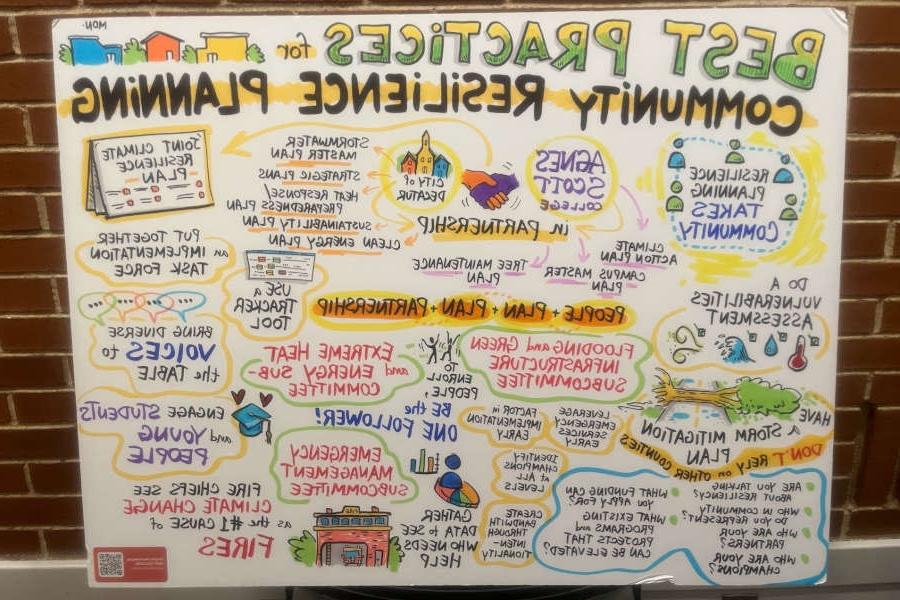 BEST PRACTICES for
COMMUNITY RESILIENCE PLANNING
RESILIENCE
PLANNING
TAKES
COMMUNITY
AGNES
SCOTT
COLLEGE
CITY of
DECATUR
in PARTNERSHIP
STORMWATER
MASTER PLAN
STRATEGIC PLANS
HEAT RESPONSE/
PREPAREDNESS PLAN
SUSTAINABILITY PLAN
CLEAN ENERGY PLAN
JOINT CLIMATE
RESILIENCE
PLAN
CLIMATE
ACTION PLAN
CAMPUS MASTER
PLAN
TREE MAINTENANCE
PLAN
PUT TOGETHER
an IMPLEMENTATION
TASK FORCE
USE A
TRACKER
TOOL
PEOPLE + PLAN + PLAN + PARTNERSHIP
DO A
VULNERABILITIES
ASSESSMENT
FLOODING and GREEN
INFRASTRUCTURE
SUBCOMMITTEE
TO
ENROLL
PEOPLE,
BE the
ONE FOLLOWER!
EXTREME HEAT
and ENERGY SUB-
COMMITTEE
BRING DIVERSE
VOICES to
the TABLE
HAVE
a STORM MITIGATION
PLAN
DON'T RELY on OTHER COUNTIES
LEVERAGE
EMERGENCY
SERVICES
EARLY
FACTOR in
IMPLEMENTATION
EARLY
IDENTIFY
CHAMPIONS
at ALL
LEVELS
CREATE
BANDWIDTH
THROUGH
INTEN-
TIONALITY
EMERGENCY
MANAGEMENT
SUBCOMMITTEE
ENGAGE STUDENTS
and YOUNG
PEOPLE
ARE YOU TALKING
ABOUT RESILIENCY?
WHO IN COMMUNITY
DO YOU REPRESENT?
WHO ARE YOUR
PARTNERS?
WHO ARE YOUR
CHAMPIONS?
WHAT FUNDING CAN
YOU APPLY FOR?
WHAT EXISTING
PROGRAMS and
PROJECTS THAT
CAN BE ELEVATED?
GATHER
DATA to SEE
WHO NEEDS
HELP
FIRE CHIEFS SEE
CLIMATE CHANGE
as the #1 CAUSE of
FIRES
FIRE